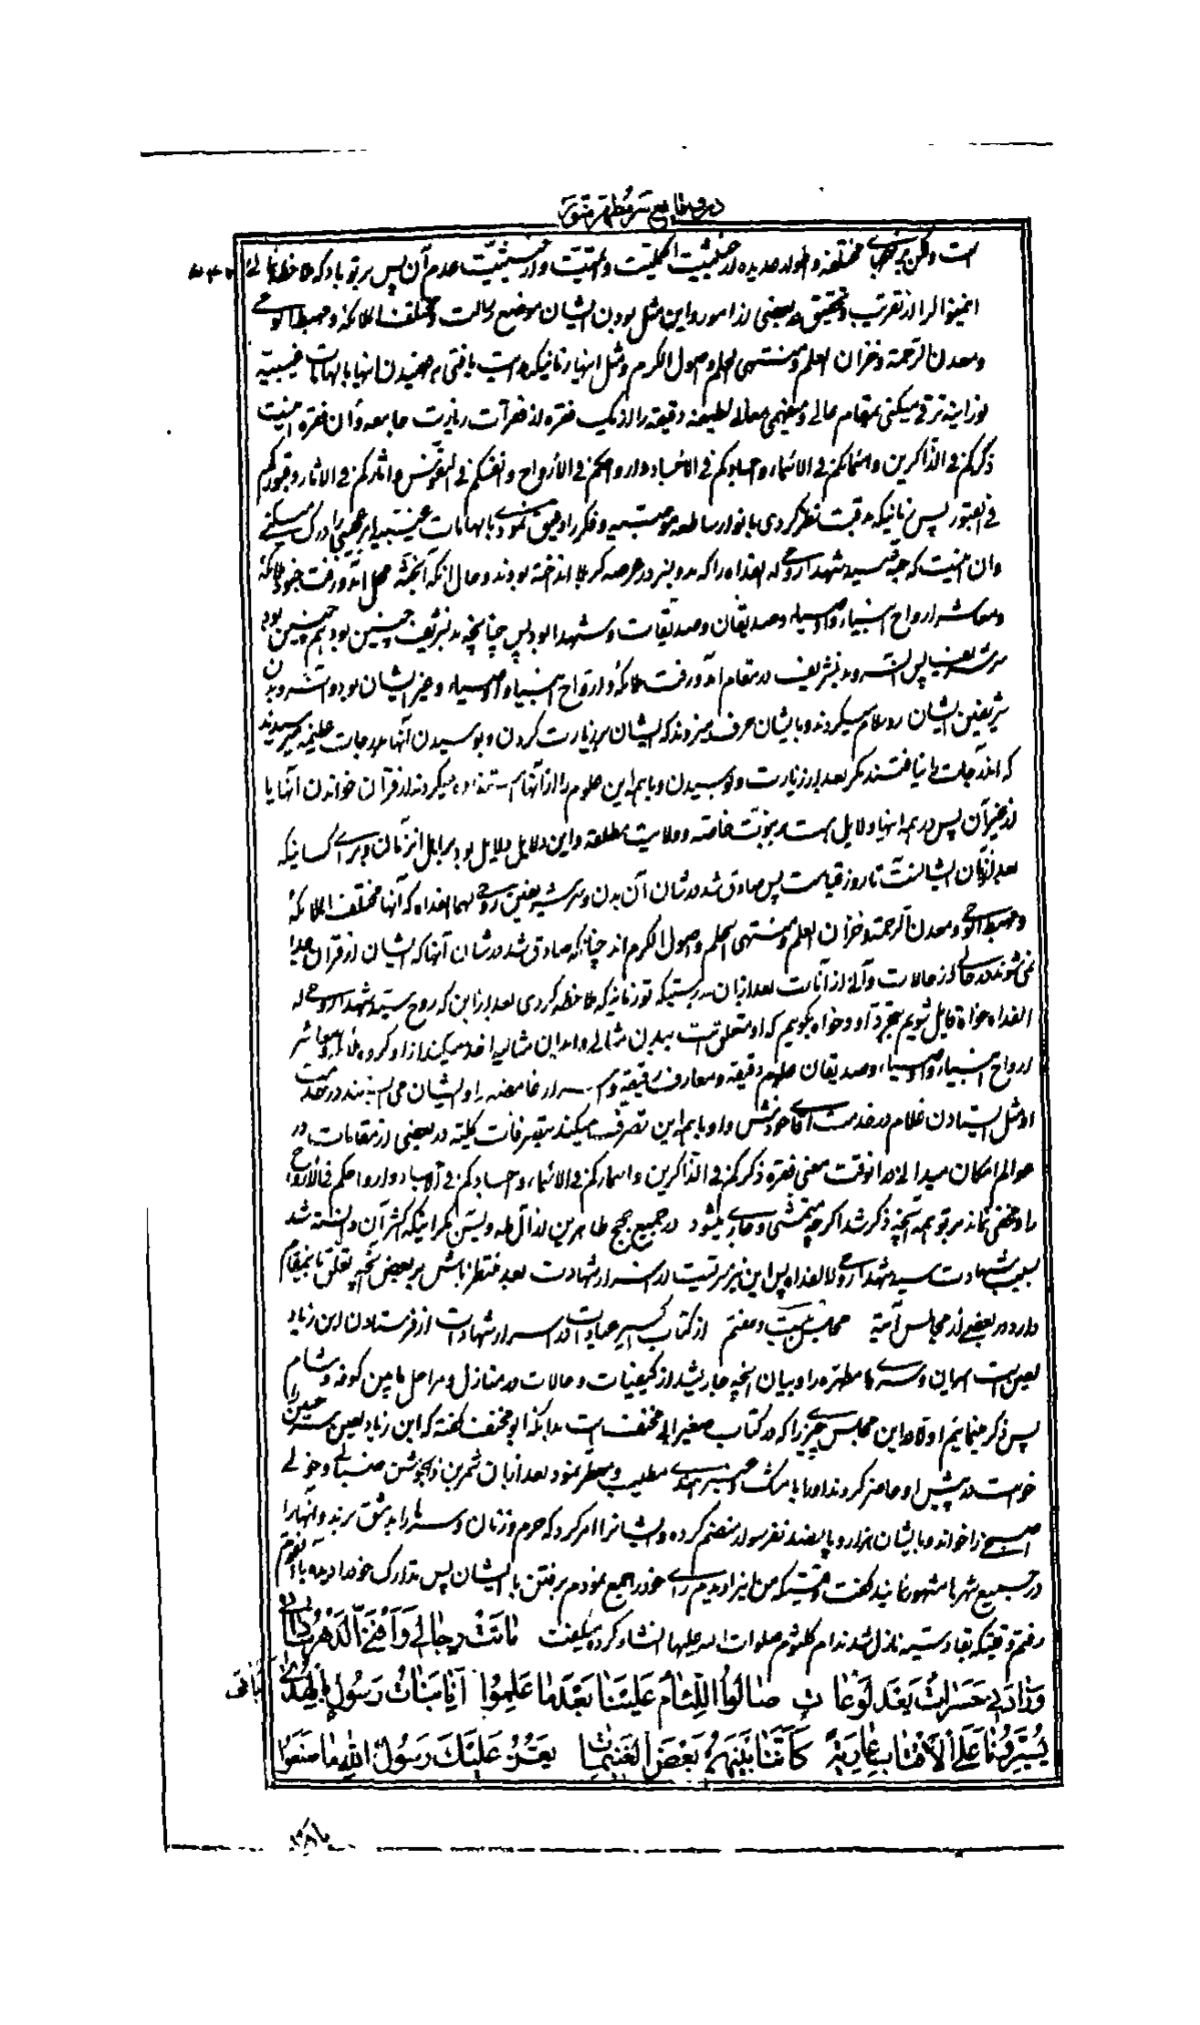 در وقایع سر مطهر منور
است و لکن بر نحوهای مختلفه و اطوار عدیده از حیثیت اکملیت و اتمیت و از حیثیت عدم آن پس بر تو باد که ملاحظه نمائی
اینمنوال را از تقریب و تحقیق در بعضی از امور و این مثل بودن ایشان موضع رسالت و مختلف الملائکه و مهبط الوحی
و معدن الرحمة و خزان العلم و منتهی الحلم و اصول الکرم و مثل اینها زمانیکه دست یافتی به فهمیدن اینها بالهامات غیبیه
نورانیه ترقی میکنی بمقام عالی و میفهمی معانی لطیفه دقیقه را از یک فقره از فقرات زیارت جامعه و آن فقره اینست
ذکرکم فی الذاکرین و اسمائکم فی الاسماء و اجسادکم فی الاجساد و ارواحکم فی الارواح و انفسکم فی النفوس و اثارکم فی الاثار و قبورکم
فی القبور پس زمانیکه بدقت نظر کردی بانوار ساطعه و فکر را دقیق نمودی بالهامات غیبیه امر عجیبی را درک میکنی
و آن اینست که جثه سید شهدا روحی له الفداه را که در عرصه کربلا انداخته بودند و حال آنکه آنجثه محل آمد و رفت جنود ملائکه
و معاشر ارواح انبیاء و اوصیاء و صدیقان و صدیقات و شهدا بود پس چنانچه بدن شریف چنین بود هم چنین بود
سر شریف پس آن سر و بدن شریف در مقام آمد و رفت ملائکه و ارواح انبیاء و اوصیاء و غیر ایشان بود و آن سر و بدن
شریفین ایشان رد سلام میکردند و بایشان حرف میزدند که ایشان بزیارت کردن و بوسیدن آنها بدرجات عظیمه میرسیدند
که آندرجات را نیافتند مگر بعد از زیارت و بوسیدن و با همه این علوم را از آنها استفاده میکردند از قران خواندن آنها یا
از غیر آن پس در همه اینها دلایل است بر نبوت خاصه و ولایت مطلقه و این دلایل دلایل بود بر اهل آنزمان و برای کسانیکه
بعد از زمان ایشانست تا روز قیامت پس صادق شد در شان آن بدن و سر شریفین روحی لهما الفداه که آنها مختلف الملائکه
و مهبط الوحی و معدن الرحمة و خزان العلم و منتهی الحلم و اصول الکرم اند چنانکه صادق شد در شان آنها که ایشان از قران جدا
نمی شوند در حالی از حالات و آنی از آنات بعد ازان بدرستیکه تو زمانیکه ملاحظه کردی بعد از این که روح سید شهدا روحی له
الفداه خواه قایل شویم بتجرد او و خواه بگوییم که او متعلق است ببدن مثالی
ارواح انبیاء و اوصیاء و صدیقان علوم دقیقه و معارف حقیقیه و اسرار غامضه را و ایشان می ایستند در خدمت
او مثل ایستادن غلام در خدمت آقای خودش و او با همه این تصرف میکند بتصرفات کلیه در بعضی از مقامات در
عوالم امکان میدانی در انوقت معنی فقره ذکرکم فی الذاکرین و اسمائکم فی الاسماء و اجسادکم فی الاجساد و ارواحکم فی الارواح
را و مخفی نماند بر تو همه آنچه ذکر شد اگرچه متمشی و جاری میشود در جمیع حجج طاهرین از آل طه و یس مگر اینکه اکثر آن دانسته شد
بسبب شهادت سید شهدا روحی لا الفداه پس این نیز سریست از اسرار شهادت بعد منتظر باش بر بعض آنچه تعلق باینمقام
دارد در بعضی از مجالس آتیه مجلس بیست و هفتم از کتاب اکسیر عبادات در اسرار شهادات از فرستادن ابن زیاد
لعین است اسیران و سرهای مطهره را و بیان آنچه جاریشد از کیفیات و حالات در منازل و مراحل مابین کوفه و شام
پس ذکر مینمائیم اولا در این مجلس چیزیرا که در کتاب صغیر ابی مخنف است بدانکه ابو مخنف گفته که ابن زیاد لعین سر حسین را
خواست در پیش او حاضر کردند او را با مشک و عنبر مطیب و معطر نمود بعد ازان شمر بن ذیجوشن ضبابی و خولی
اصبحی را خواند و بایشان هزار و پانصد نفر سوار منضم کرده و ایشانرا امر کرد که حرم و زنان و سرها را بدمشق برند و آنها را
در جمیع شهرها مشهور نمایند گفت وقتیکه من اینرا دیدم رای خود را جمع نمودم برفتن با ایشان پس تدارک خود را دیده با آنقوم
رفتم وقتیکه بقادسیه نازل شدند ام کلثوم صلوات الله علیها انشاد کرده میگفت مَاتَتْ رِجَالِي وَاَفْنَى الدَّهْرُ سَادَاتِي
وَزَادَنِي حَسَرَاتٍ بَعْدَ لَوْعَاتٍ صَالُوا اللِّئَامُ عَلَيْنَا بَعْدَمَا عَلِمُوا اَنَّا بَنَاتُ رَسُولٍ بِالْهُدَى
يُسَيِّرُونَا عَلَى الْاَقْتَابِ عَارِيَةً كَاَنَّنَا بَيْنَهُمْ بَعْضُ الْغَنِيمَاتِ يَعُزُّ عَلَيْكَ رَسُولَ اللهِ مَا صَنَعُوا